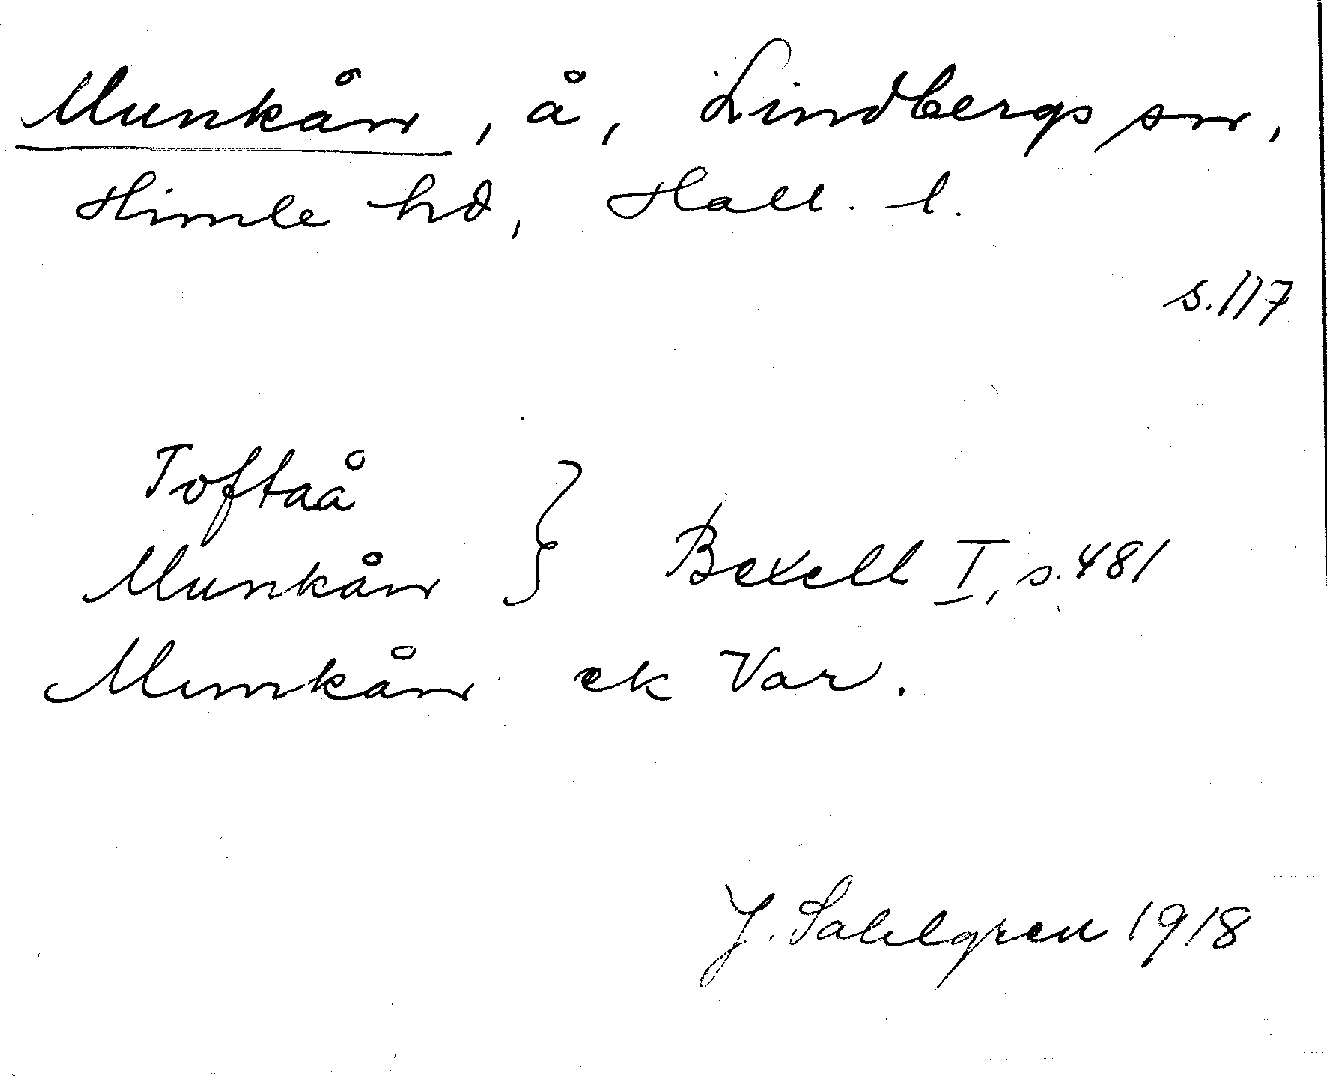 Munkån, å, Lindbergs sn,
Himle hd, Hall. l.
s. 117
Toftaå
Munkån } Bexell I, s. 481
Munkån ek Var.
J. Sahlgren 1918